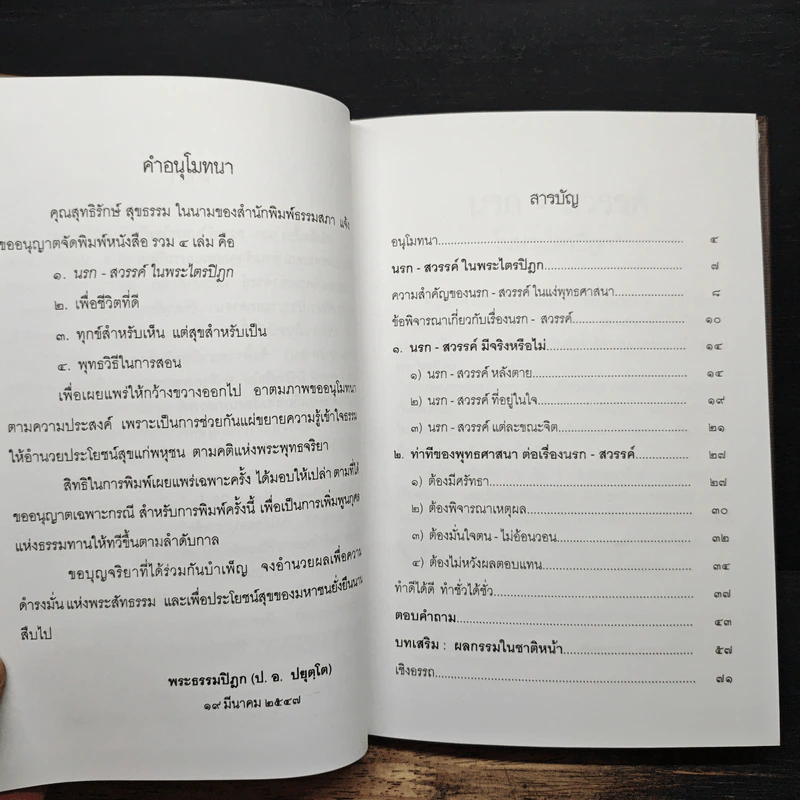 คำอนุโมทนา
คุณสุทธิรักษ์ สุขธรรม ในนามของสำนักพิมพ์ธรรมสภา แจ้ง
ขออนุญาตจัดพิมพ์หนังสือ รวม ๔ เล่ม คือ
๑. นรก - สวรรค์ ในพระไตรปิฎก
๒. เพื่อชีวิตที่ดี
๓. ทุกข์สำหรับเห็น แต่สุขสำหรับเป็น
๔. พุทธวิธีในการสอน
เพื่อเผยแพร่ให้กว้างขวางออกไป อาตมภาพขออนุโมทนา
ตามความประสงค์ เพราะเป็นการช่วยกันแผ่ขยายความรู้เข้าใจธรรม
ให้อำนวยประโยชน์สุขแก่พหุชน ตามคติแห่งพระพุทธจริยา
สิทธิในการพิมพ์เผยแพร่เฉพาะครั้ง ได้มอบให้เปล่า ตามที่ได้
ขออนุญาตเฉพาะกรณี สำหรับการพิมพ์ครั้งนี้ เพื่อเป็นการเพิ่มพูนกุศล
แห่งธรรมทานให้ทวีขึ้นตามลำดับกาล
ขอบุญจริยาที่ได้ร่วมกันบำเพ็ญ จงอำนวยผลเพื่อความ
ดำรงมั่น แห่งพระสัทธรรม และเพื่อประโยชน์สุขของมหาชนยั่งยืนนาน
สืบไป
พระธรรมปิฎก (ป. อ. ปยุตฺโต)
๑๙ มีนาคม ๒๕๔๗
สารบัญ
อนุโมทนา.......... ๔
นรก - สวรรค์ ในพระไตรปิฎก.......... ๗
ความสำคัญของนรก - สวรรค์ ในแง่พุทธศาสนา.......... ๘
ข้อพิจารณาเกี่ยวกับเรื่องนรก - สวรรค์.......... ๑๐
๑. นรก - สวรรค์ มีจริงหรือไม่.......... ๑๔
๑) นรก - สวรรค์ หลังตาย.......... ๑๔
๒) นรก - สวรรค์ ที่อยู่ในใจ.......... ๑๙
๓) นรก - สวรรค์ แต่ละขณะจิต.......... ๒๑
๒. ท่าทีของพุทธศาสนา ต่อเรื่องนรก - สวรรค์.......... ๒๗
๑) ต้องมีศรัทธา.......... ๒๗
๒) ต้องพิจารณาเหตุผล.......... ๓๐
๓) ต้องมั่นใจตน - ไม่อ้อนวอน.......... ๓๒
๔) ต้องไม่หวังผลตอบแทน.......... ๓๔
ทำดีได้ดี ทำชั่วได้ชั่ว.......... ๓๗
ตอบคำถาม.......... ๔๓
บทเสริม : ผลกรรมในชาติหน้า.......... ๕๗
เชิงอรรถ.......... ๗๑